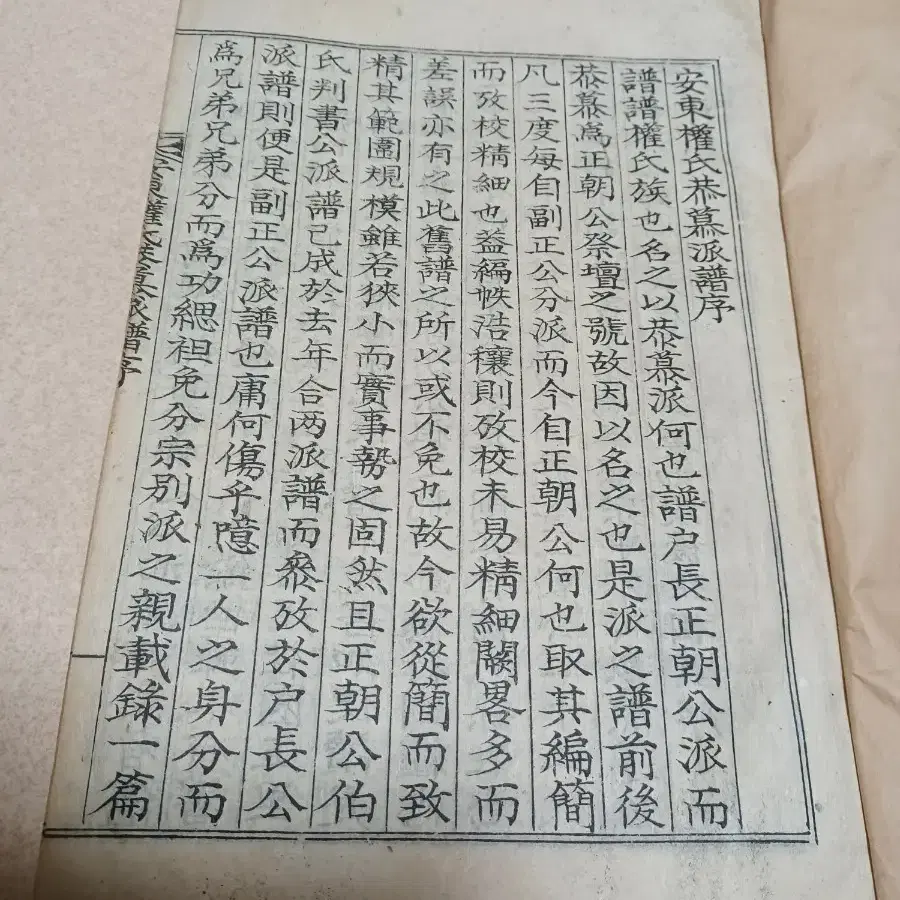 安東權氏恭慕派譜序
譜譜權氏族也名之以恭慕派何也譜户長正朝公派而
恭慕爲正朝公祭壇之號故因以名之也是派之譜前後
凡三度每自副正公分派而今自正朝公何也取其編簡
而攷校精細也盖編帙浩穰則攷校未易精細闕畧多而
差誤亦有之此舊譜之所以或不免也故今欲從簡而致
精其範圍規模雖若狹小而實事勢之固然且正朝公伯
氏判書公派譜已成於去年合两派譜而叅攷於户長公
派譜則便是副正公派譜也庸何傷乎噫一人之身分而
爲兄弟兄弟分而爲功緦袒免分宗别派之親載錄一篇
安東權氏恭慕派譜序